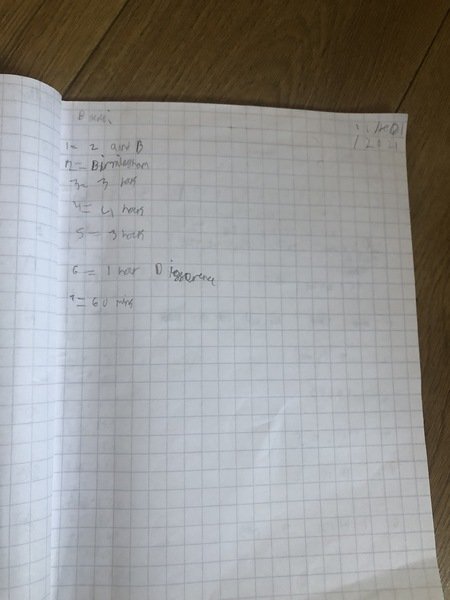 1= 2 and B
2= Birmingham
3= 3 hours
4= 4 hours
5 = 3 hours
6 = 1 hour
7= 60 mins
/2021